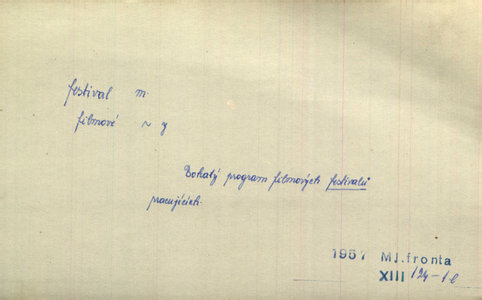 festival m.
filmové ~ y
Bohatý program filmových festivalů
pracujících.
1957 Ml.fronta
XIII 124-1b